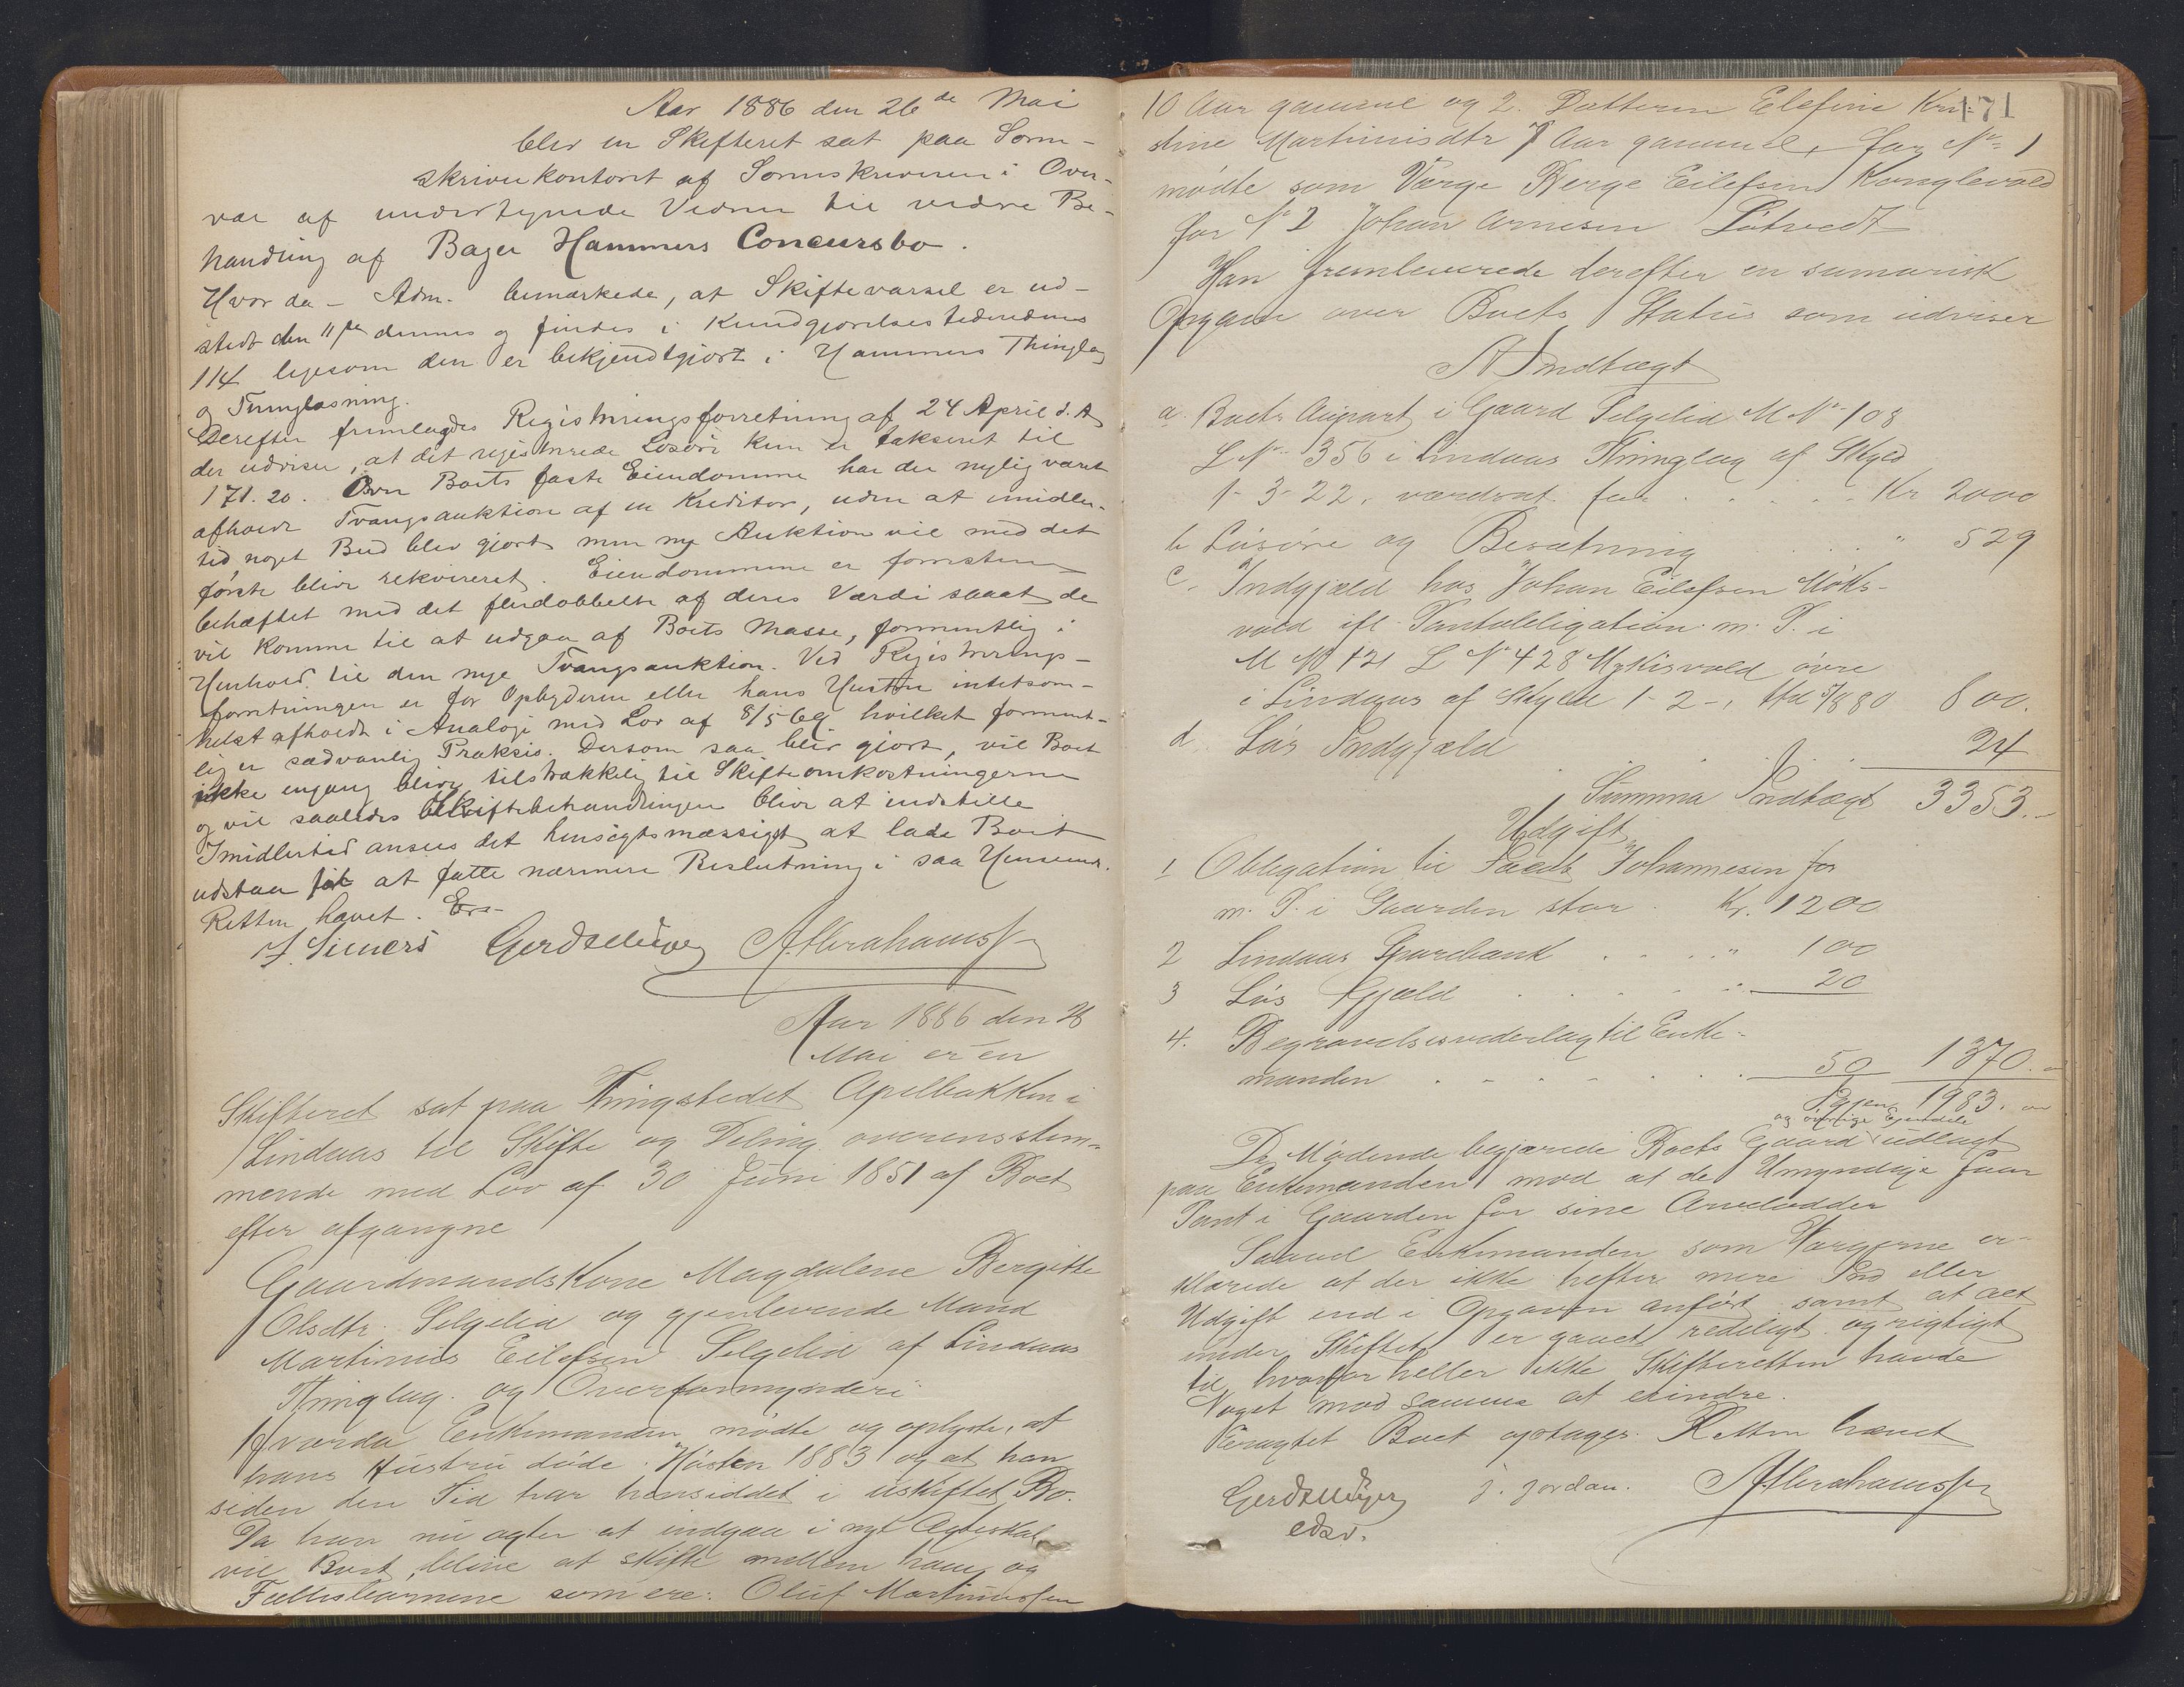 Aar 1886 den 26de Mai
blev en Skifteret sat paa Soren-
skriverkontoret af Sorenskriveren i Over-
vær af undertegnede Vidner til videre Be-
handling af Bager Hammers Concursbo.
Hvor da - Adm. bemærkede, at Skiftevarsel er ud-
stedt den 11te dennes og findes i Kundgjørelsestidendes
114 ligesom den er bekjendtgjort i Hammers Thinglag
og Thinglæsning.
Derefter fremlagdes Registreringsforretning af 24 April d. A
der udviser, at det registrerede Løsøre kun er takseret til
171.20. Over Boets faste Eiendomme har der nylig været
afholdt Tvangsauktion af en Kreditor, uden at imidler-
tid noget Bud blev gjort men ny Auktion vil med det
første blive rekvireret. Eiendommene er forresten
behæftet med det flerdobbelte af deres Værdi saaat de
vil komme til at udgaa af Boets Masse, formentlig i
Henhold til den nye Tvangsauktion. Ved Registrerings-
forretningen er for Opbyderen eller hans Hustru intetsom-
helst afholdt i Analogi med Lov af 8/5 69 hvilket forment-
lig er sædvanlig Praksis. Dersom saa blir gjort, vil Boet
ikke engang blive tilstrækkelig til Skifteomkostningerne
og vil saaledes Skiftebehandlingen blive at indstille
Imidlertid ansees det hensigtsmæssigst at lade Boet
udstaa for at fatte nærmere Beslutning i saa Henseende.
Retten hævet.
F. Siewers Gerdt Meyer A Abrahamss
Aar 1886 den 28
Mai er en
Skifteret sat paa Thingstedet Apelbakken i
Lindaas til Skifte og Deling overensstem-
mende med Lov af 30 Juni 1851 af Boet
efter afgangne
Gaardmandskone Magdalene Bergitte
Olsdtr. Selgelid og gjenlevende Mand
Martinus Eilefsen Selgelid af Lindaas
Thinglag. og Overformynderi
Hvorda Enkemanden mødte og oplyste, at
hans Hustru døde Høsten 1883 og at han
siden den Tid har hensiddet i uskiftet Bo.
Da han nu agter at indgaa i nyt Ægteskab
vil Boet blive at skifte mellem ham og
Fællesbørnene som ere: Oluf Martinussen
171
10 Aar gammel og 2. Datteren Elefine Kri-
stine Martinisdtr 7 Aar gammel, for No 1
mødte som Værge Berge Eilefsen Konglevold
for No 2 Johan Arnesen Låtvedt
Han fremleverede derefter en sumarisk
Opgave over Boets Status som udviser
A Indtægt
a. Boets Anpart i Gaard Selgelid M No 108
L No 356 i Lindaas Thinglag af Skyld
1-3-22, værdsat for . . . . Kr 2000
b Løsøre og Besætning . . . " 529
c. Indgjæld hos Johan Eilefsen Møks-
vold ifl. Pantobligation m. P. i
M No 121 L No 428 Mykisvold øvre
i Lindaas af Skyld 1-2-, 5/8 80 800.
d Løs Indgjæld . . . . 24
Summa Indtægt 3353.-
Udgift
1 Obligation til Jacob Johannesen for
m. P. i Gaarden stor . Kr. 1200
2 Lindaas Sparebank . . . " 100
3 Løs Gjæld . . . . " 20
4. Begravelsesvederlag til Enke-
manden . . . . . . 50 1370.-
Igjen 1983.
og øvrige Eiendele
De Mødende begjærede Boets Gaard udlagt
paa Enkemanden mod at de Umyndige faar
Pant i Gaarden for sine Arvelodder
Saavel Enkemanden som Værgerne er-
klærede at der ikke hefter mere Ind eller
Udgift end i Opgaven anført samt at alt
under Skiftet er gaaet redeligt og rigtigt
til, hvorfor heller ikke Skifteretten havde
Noget mod samme at erindre.
Boet optages. Retten hævet
Gerdt Meyer J. Jordan. A Abrahamss
edsv.